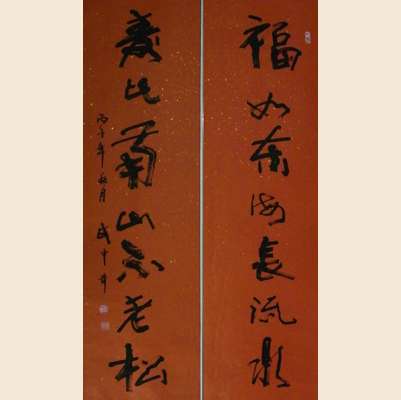 福如东海长流水
寿比南山不老松
丙子年秋月